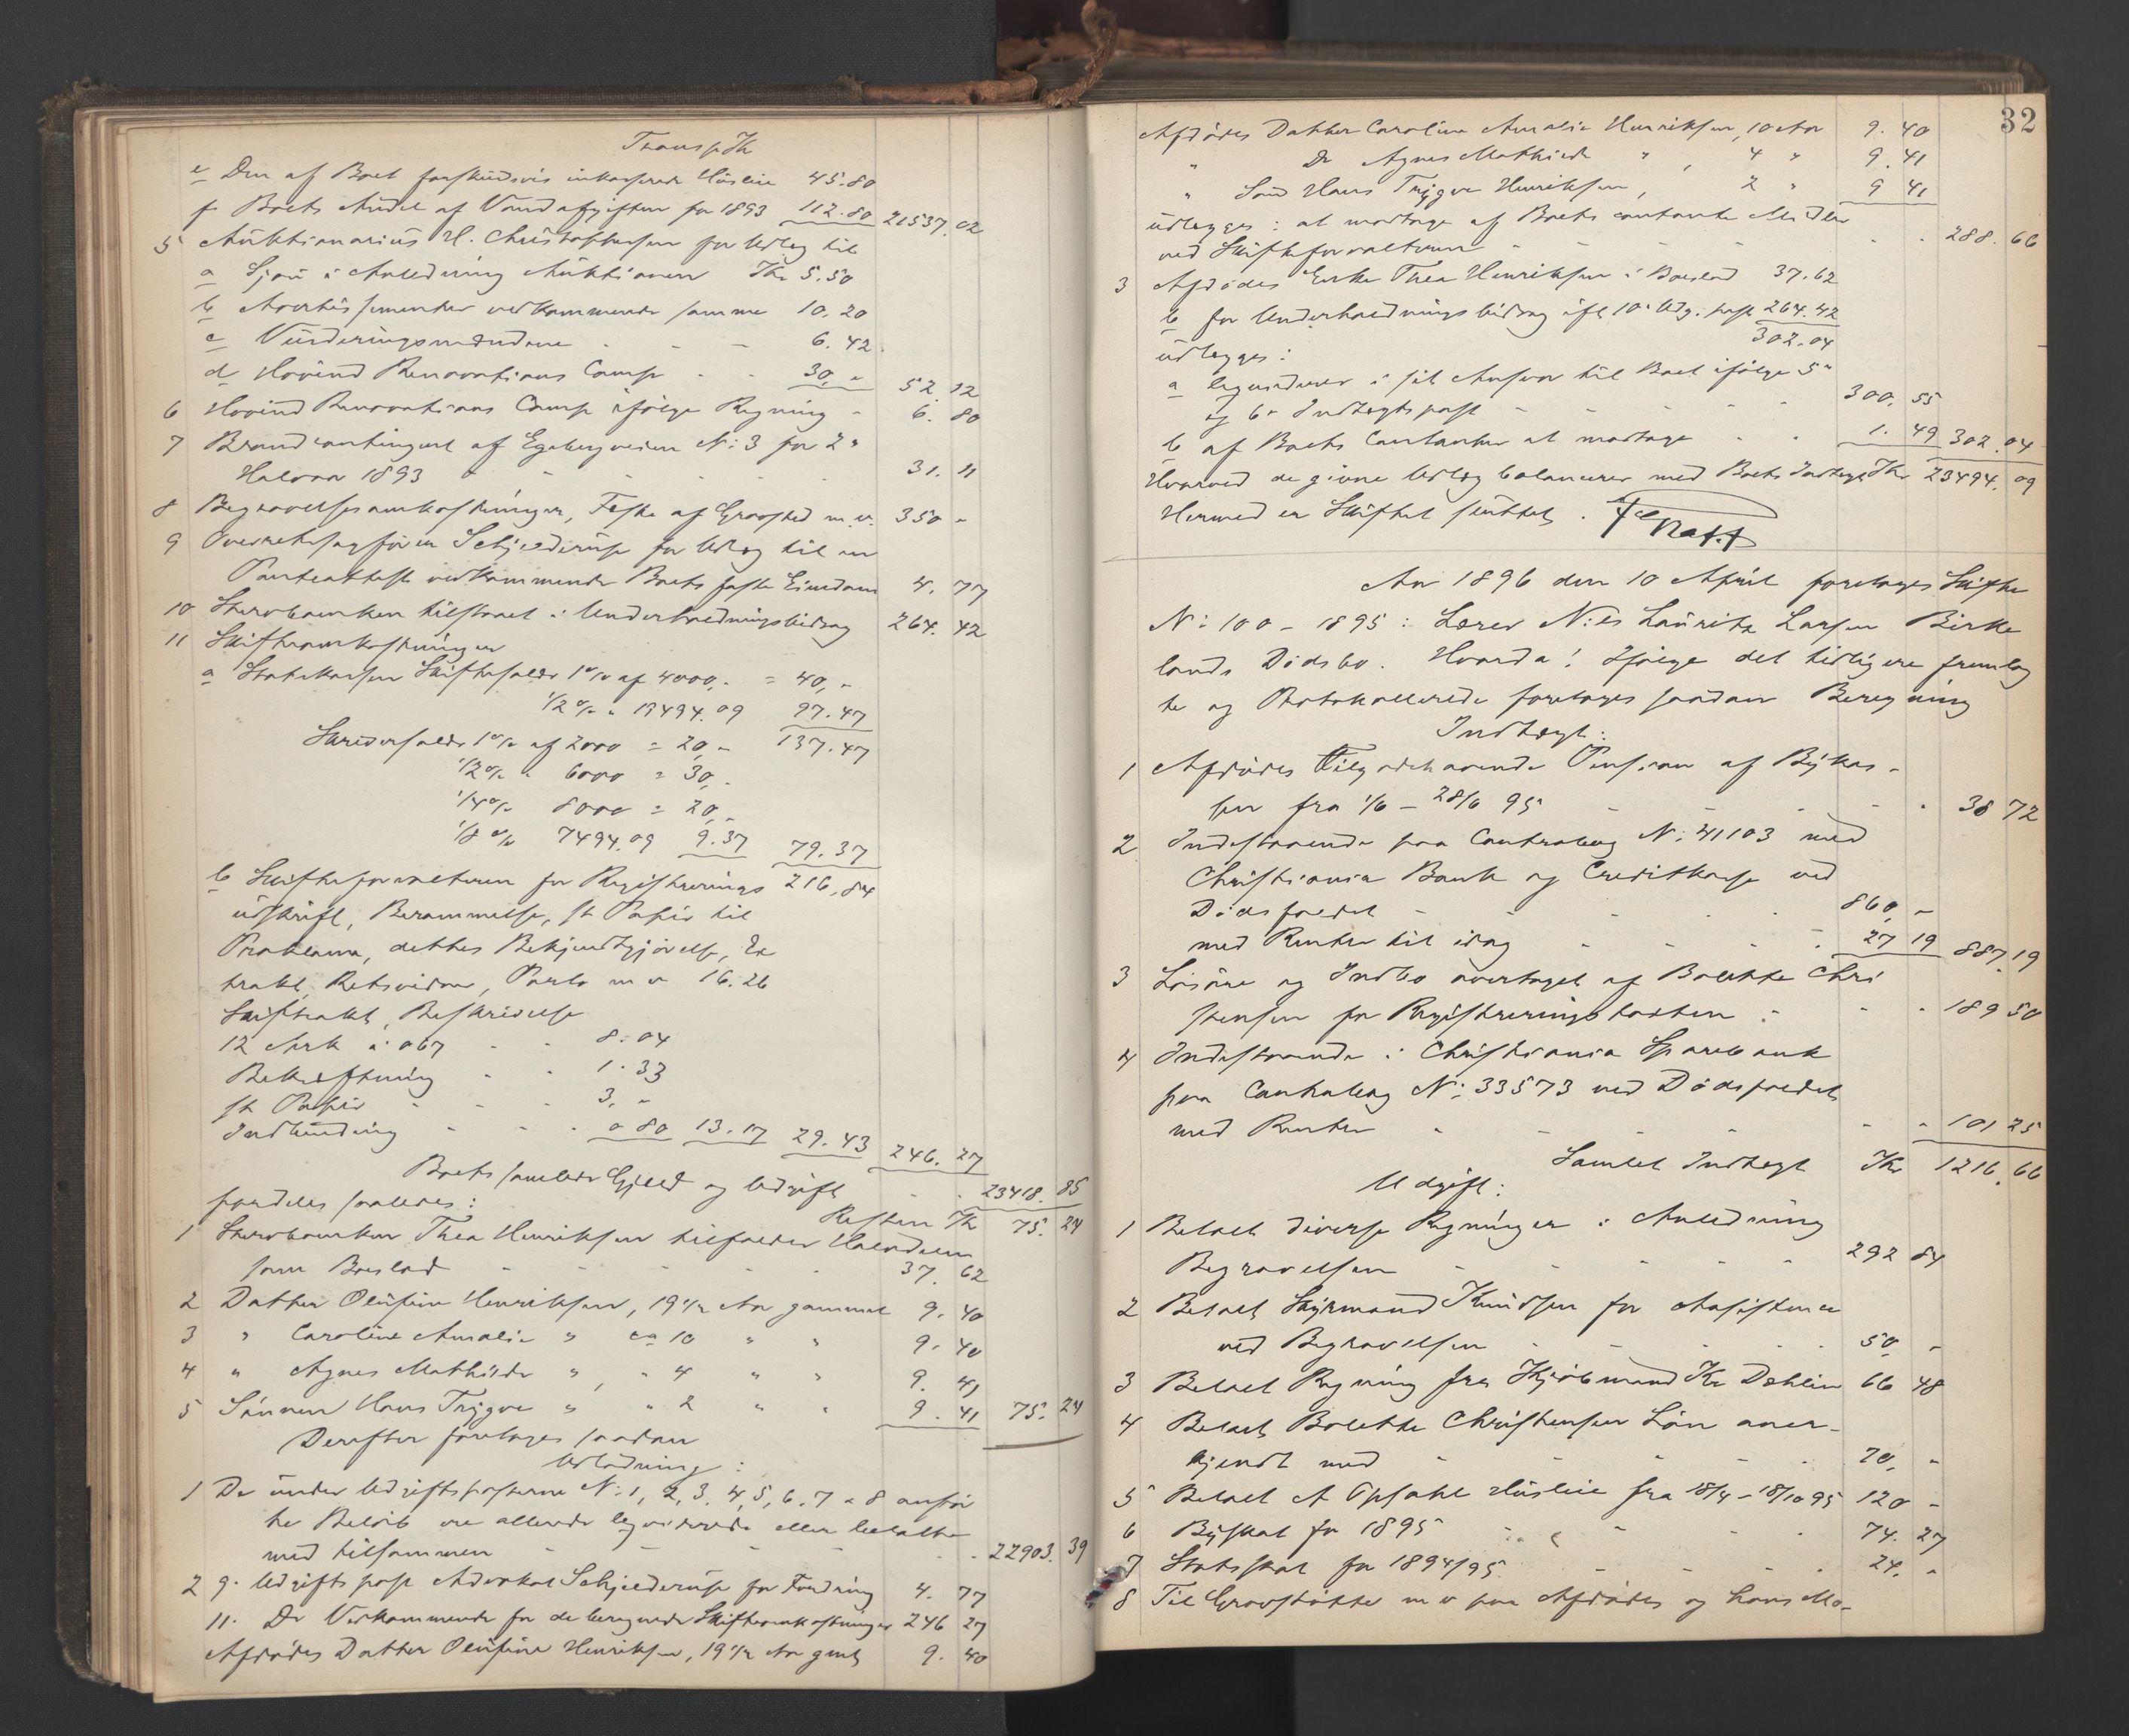 Transp Kr
e Den af Boet forskudsvis inkasserede Husleie 45.80
f Boets Andel af Vandafgiften for 1893 112.80 21537.02
5 Auktionarius H. Christophersen for Udlæg til
a Sjau i Anledning Auktionen Kr 5.50
b Avertissementer vedkommende samme 10.20
c Vurderingsmændene - - 6.42
d Hovind Renovations Comp - - 30,- 52.12
6 Hovind Renovations Comp ifølge Regning - 6.80
7 Brandcontingent af Egebergveien N: 3 for 2.
Halvaar 1893 - - - - 31.11
8 Begravelsesomkostninger, Fæste af Gravsted m.v. 350 -
9 Overretssagfører Schjelderup for Udlæg til en
Panteattest vedkommende Boets faste Eiendom 4.77
10 Skiftramkostninger
10 Sterboenken tilstaaet i Underholdningsbidrag 264.42
11 Skifteomkostninger
a Statskassen Skiftesalær 1% af 4000,- = 40,-
1/2% " 19494.09 97.47
Skriversalær 1% af 2000 = 20,- 137.47
1/2% " 6000 = 30,-
1/4% 8000 = 20,-
1/8% 7494.09 9.37 79.37
b Skifteforvalteren for Registrerings 216,84
udskrift, Berammelse, st Papir til
Proklama, dettes Bekjendtgjørelse, Ex
trakt, Retsvidner, Porto m v 16.26
Skifteakt, Beskrivelse
12 Ark a 067 - - 8.04
Bekræftning - - 1.33
st Papir - - - 3,-
Indbinding - - - 0 80 13.17 29.43 246.27
Boets samlede Gjæld og Udgift - - 23418.85
Resten Kr 75.24
fordeles saaledes:
1 Sterboenken Thea Henriksen tilfalder Halvdelen
som Boeslod - - - - 37.62
2 Datter Olufine Henriksen, 19 1/2 Aar gammel 9.40
3 " Caroline Amalie " ca 10 " " 9.40
4 " Agnes Mathilde " , " 4 " " 9.41
5 Sønnen Hans Trygve " " 2 " " 9.41 75.24
Derefter foretages saadan
Udlodning:
1 De under Udgiftsposterne N: 1, 2, 3, 4, 5, 6, 7 & 8 anfør
te Beløb ere allerede liqviderede eller betalte
med tilsammen - - - - 22903.39
2 9. Udgiftspost Advokat Schjelderup for Fordring 4.77
11. Do Vedkommende for de beregnede Skifteomkostninger 246 27
Afdødes Datter Olufine Henriksen, 19 1/2 Aar gml 9.40
32
Afdødes Datter Caroline Amalie Henriksen, 10 Aar 9.40
" Do Agnes Mathilde " , 4 " 9.41
" Søn Hans Trygve Henriksen, 2 " 9 41
udlægges: at modtage af Boets contante Midler
ved Skifteforvalteren - - - - - 288.66
3 Afdødes Enke Thea Henriksen i Boeslod 37.62
b for Underholdningsbidrag ifl 10. Udg. post 264.42
302.04
udlægges:
a liqviderer i sit Ansvar til Boet ifølge 5.
og 6. Indtægtspost - - - - - 300.55
b af Boets Contanter at modtage - - 1.49 302.04
Hvorved de givne Udlæg balancerer med Boets Indtægt Kr 23494.09
Hermed er Skiftet sluttet.
Aar 1896 den 10 April foretages Skifte
N: 100 - 1895: Lærer Nils Lauritz Larsen Birke
lands Dødsbo. Hvorda: Ifølge det tidligere fremlag
te og Protokollerede foretages saadan Beregning
Indtægt:
1 Afdødes tilgodehavende Pension af Bykas-
sen fra 1/6 - 28/6 95 - - - - 38 72
2 Indestaaende paa Contrabog N: 41103 med
Christiania Bank og Creditkasse ved
Dødsfaldet - - - - - 860,-
med Renter til idag - - - - 27 19 887.19
3 Løsøre og Indbo overtaget af Bolette Chri
stensen for Registreringstaxten: - - 189 50
4 Indestaaende i Christiania Sparebank
paa Contrabog N: 33573 ved Dødsfaldet
med Renter - - - - - - 101 25
Samlet Indtægt Kr 1216.66
Udgift:
1 Betalt diverse Regninger i Anledning
Begravelsen - - - - - 292 84
2 Betalt Styrmand Knudsen for Assistance
ved Begravelsen - - - - 50,-
3 Betalt Regning fra Kjøbmand Kr Dæhlin 66 48
4 Betalt Bolette Christensen Løn aner-
kjendt med - - - - - 70,-
5 Betalt A Opsahl Husleie fra 18/4 - 18/10 95 120 -
6 Byskat for 1895 - - - - 74.27
7 Statsskat for 1894/95 - - - - 24.-
8 Til Gravstøtte m v paa Afdødes og hans Mo-